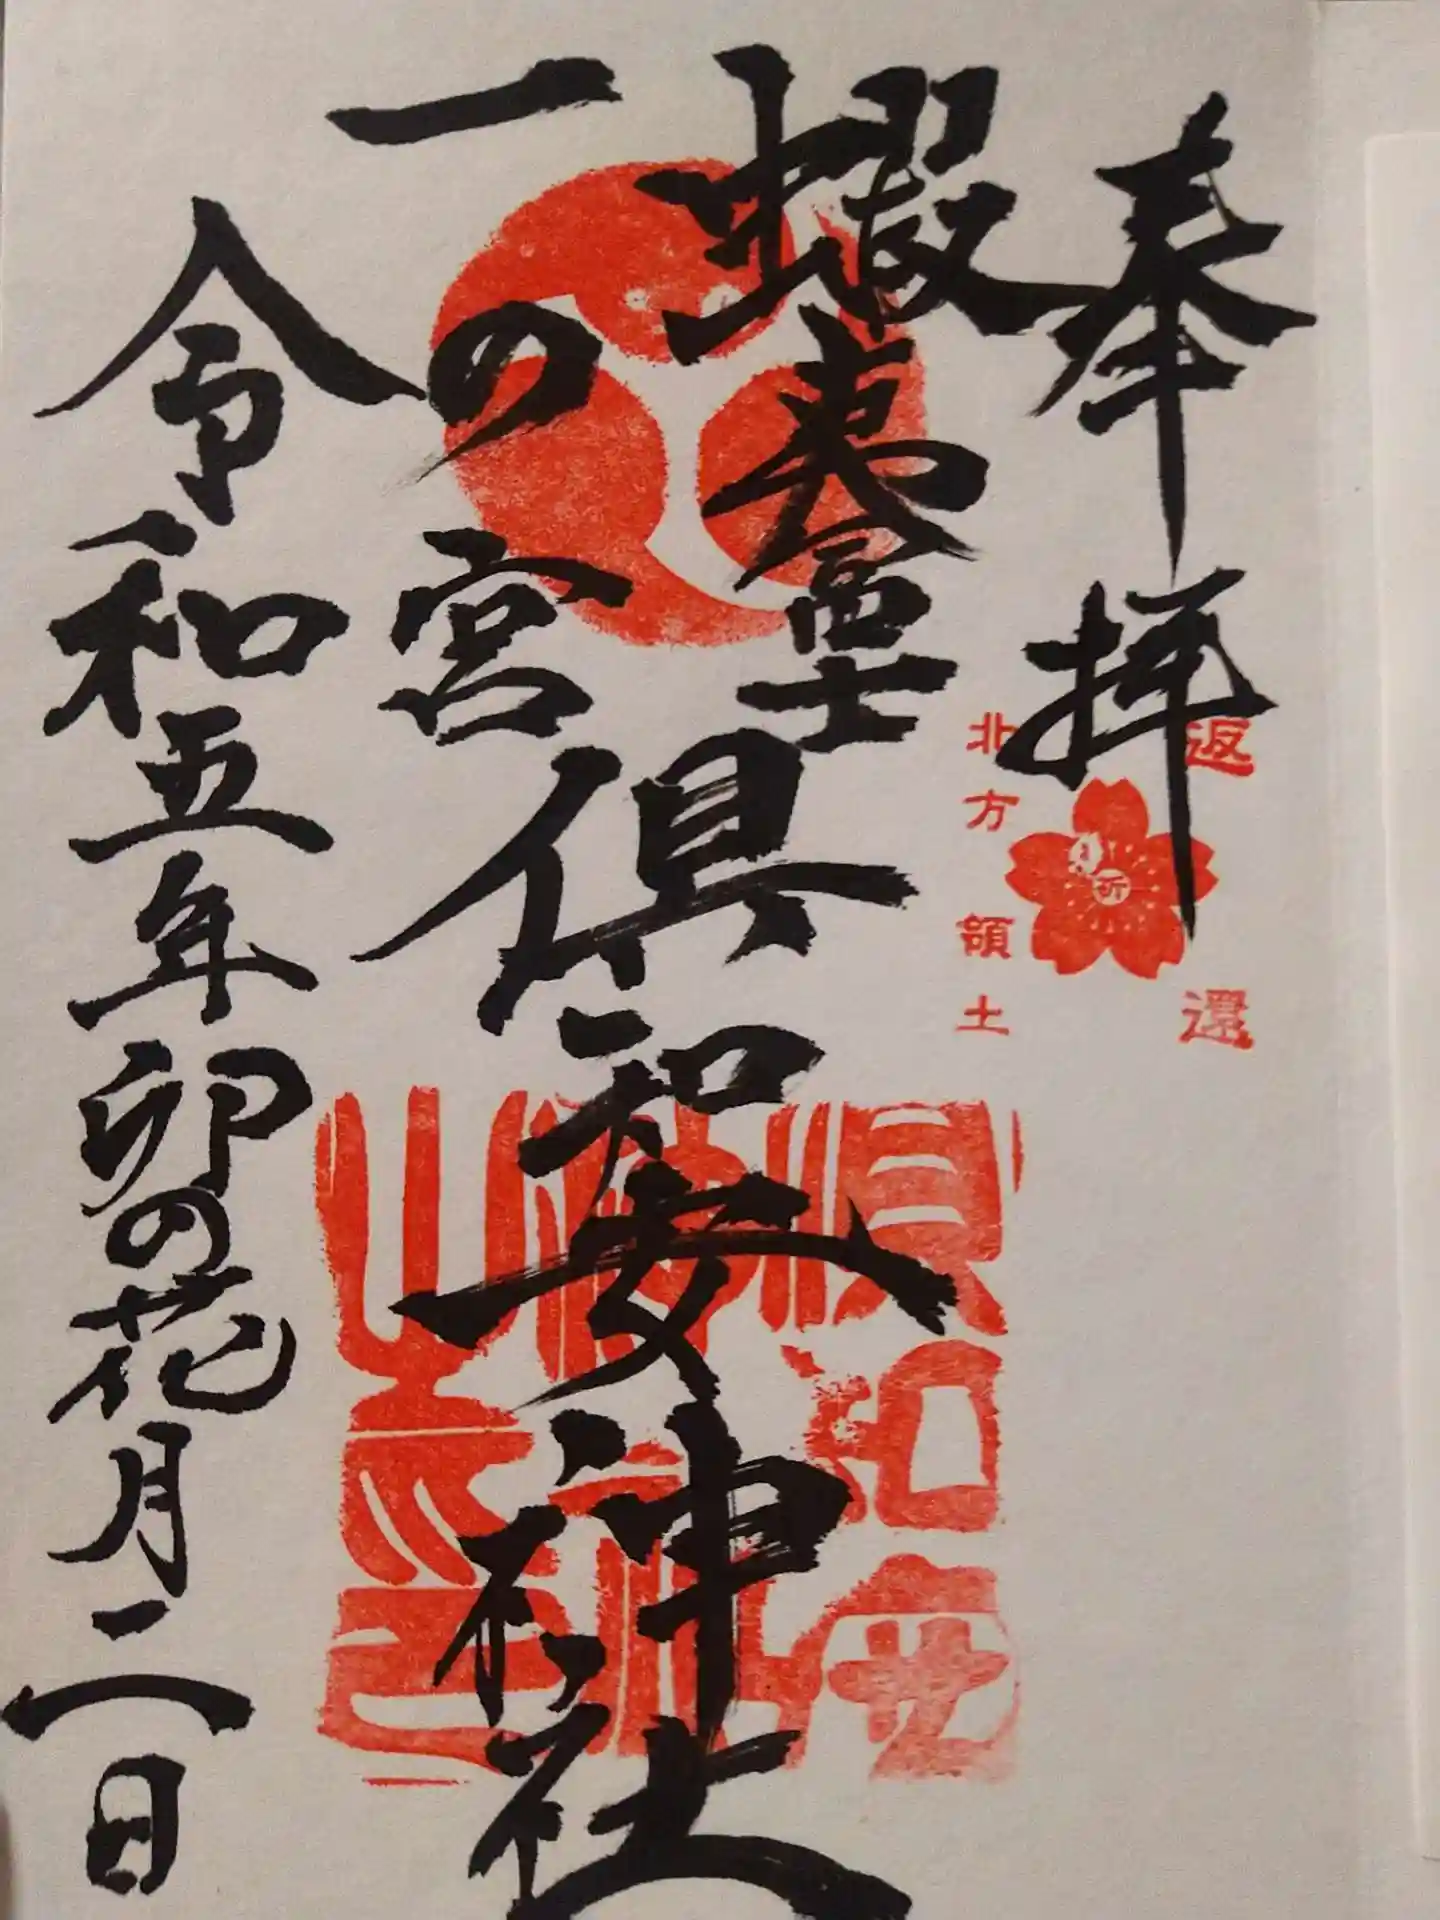 奉拝
返還
北方領土
祈
蝦夷富士
一の宮
倶知安神社
令和五年卯の花月二日
倶知安
神社
之印